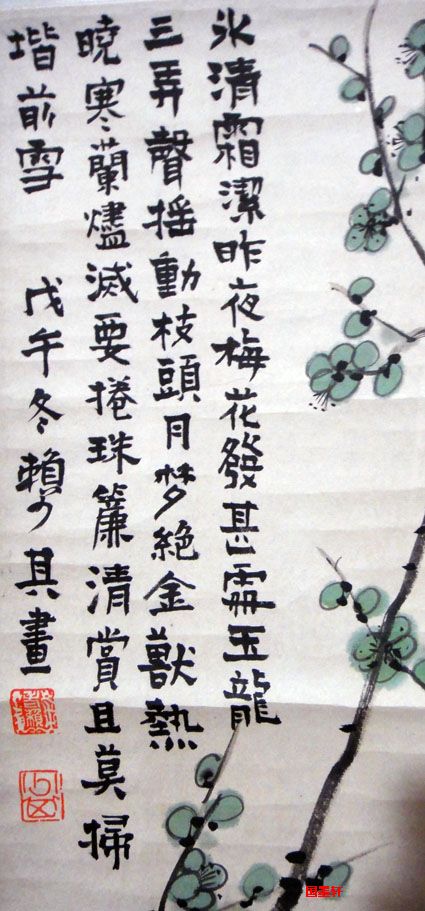 氷清霜潔昨夜梅花發甚玉龍
三弄聲摇動枝頭月梦絶金獸熱
曉寒蘭燼滅要捲珠簾清賞且莫掃
堦前雪 戊午冬賴少其畫
国墨轩